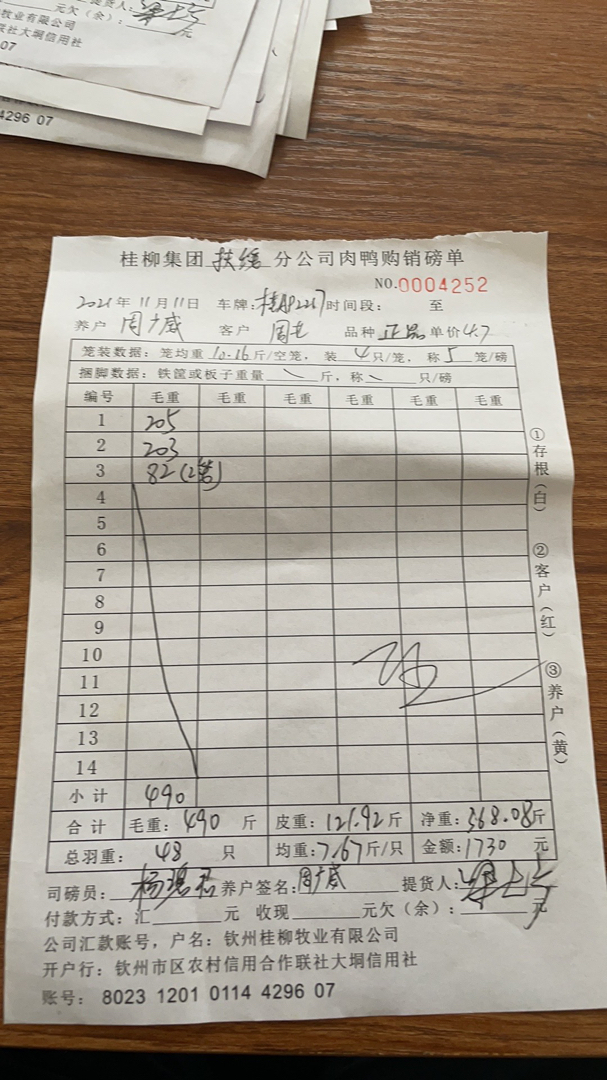 提货人:
元欠(余): 元
牧业有限公司
联社大垌信用社
07
4296 07
桂柳集团 扶绥 分公司肉鸭购销磅单
NO.0004252
2021年11月11日 车牌: 时间段: 至
养户 周广威 客户 周七 品种 正品 单价 4.7
笼装数据: 笼均重 10.16 斤/空笼, 装 4 只/笼, 称 5 笼/磅
捆脚数据: 铁筐或板子重量 \ 斤, 称 \ 只/磅
编号 毛重 毛重 毛重 毛重 毛重 毛重
1 205
2 203
3 82(2笼)
4
5
6
7
8
9
10
11
12
13
14
小计 490
合计 毛重: 490 斤 皮重: 121.92斤 净重: 368.08斤
总羽重: 48 只 均重: 7.67斤/只 金额: 1730 元
司磅员: 养户签名: 周广威 提货人:
付款方式: 汇 元 收现 元欠(余): 元
公司汇款账号, 户名: 钦州桂柳牧业有限公司
开户行: 钦州市区农村信用合作联社大垌信用社
账号: 8023 1201 0114 4296 07
①存根(白)
②客户(红)
③养户(黄)